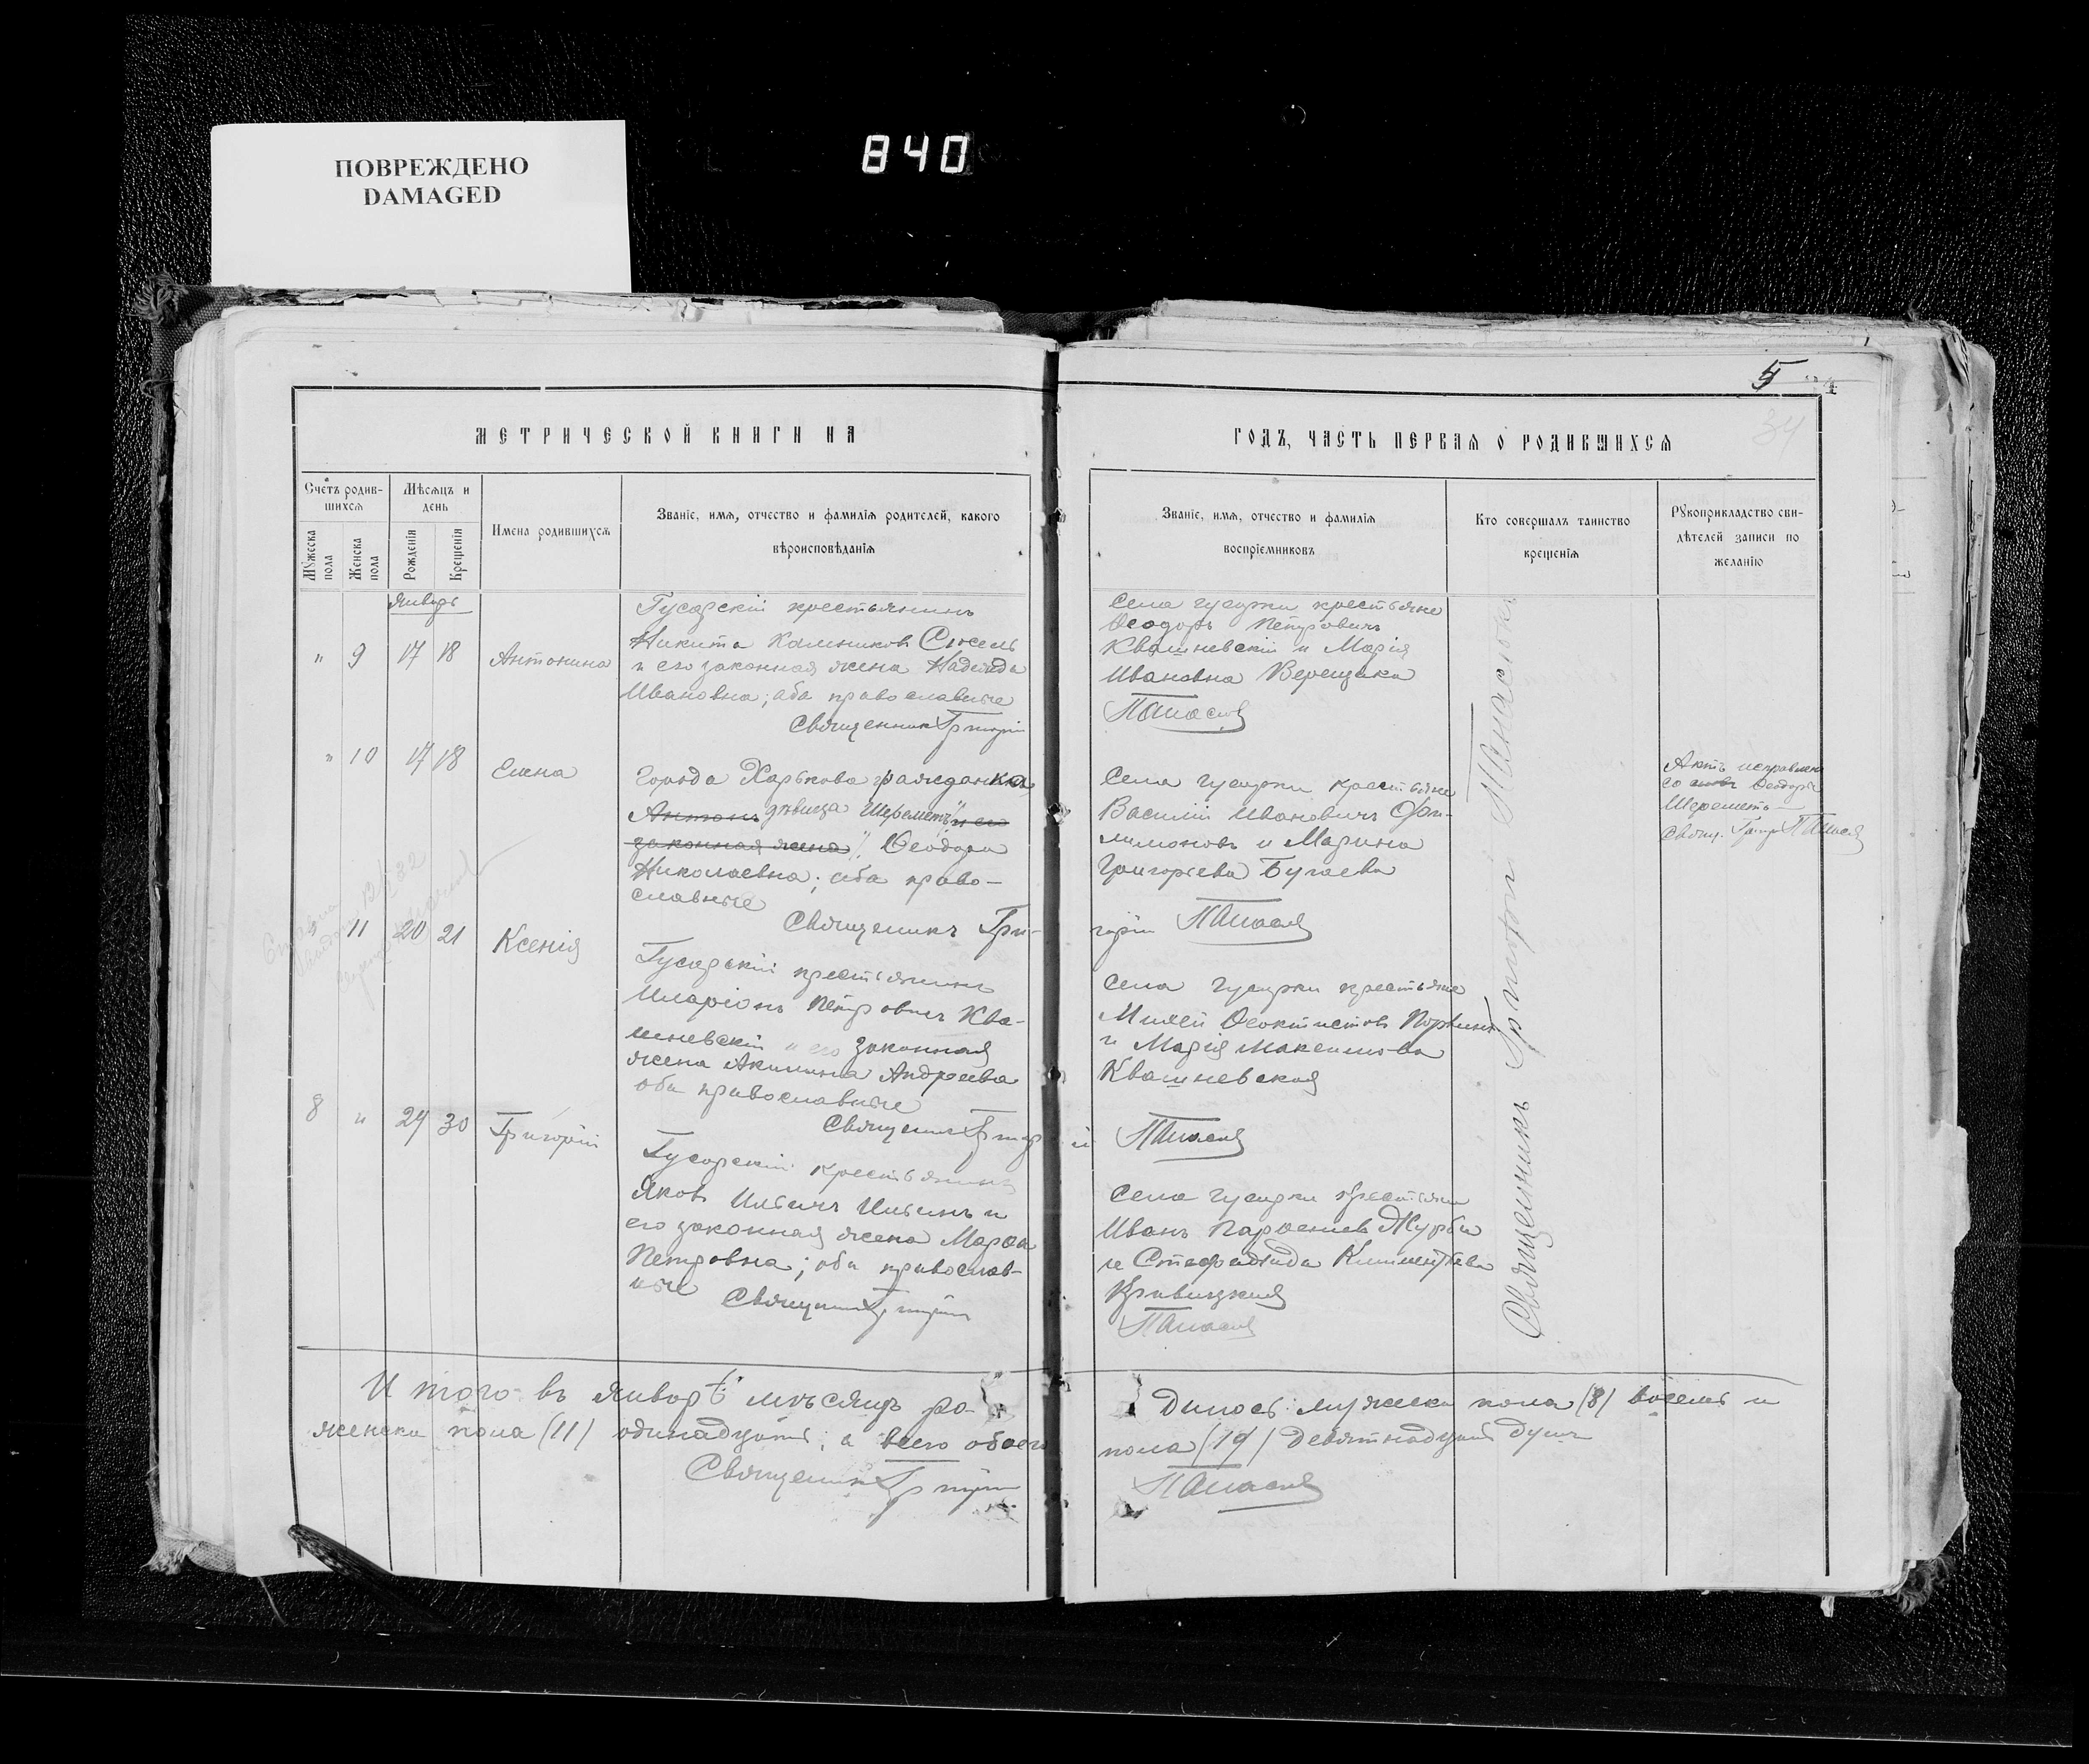 ПОВРЕЖДЕНО
DAMAGED
840
5
34
МЕТРИЧЕСКОЙ КНИГИ НА
Счетъ родив-
шихся
Мѣсяцъ и
день
Мужеска
пола
Женска
пола
Рожденія
Крещенія
Имена родившихся
Званіе, имя, отчество и фамилія родителей, какого
вѣроисповѣданія
Январь
" 9 17 18 Антонина
Гусарскій крестьянинъ
Никита
и его законная жена Надежда
Ивановна; оба православные
Священникъ Григорій
" 10 17 18 Елена
Города Харькова гражданка
Антонъ дѣвица Шереметъ и его
законная жена Ѳеодора
Николаевна; оба право-
славные
Священникъ Гри-
11 20 21 Ксенія
Гусарскій крестьянинъ
Иларіонъ Петровичъ Ква-
шневскій и его законная
жена Акилина Андреева
оба православные
Священникъ Григорій
8 " 29 30 Григорій
Гусарскій крестьянинъ
Яковъ Ильичъ Ильинъ и
его законная жена Марѳа
Петровна; оба православ-
ные
Священникъ Григорій
И того въ январѣ мѣсяцѣ ро-
женска пола (11) одинадцать; а всего обоего
Священникъ Григорій
ГОДЪ, ЧАСТЬ ПЕРВАЯ О РОДИВШИХСЯ
Званіе, имя, отчество и фамилія
воспріемниковъ
Кто совершалъ таинство
крещенія
Рукоприкладство сви-
дѣтелей записи по
желанію
Села Гусарки крестьяне
Ѳеодоръ Петровичъ
Квашневскій и Марія
Ивановна Верещака
Села Гусарки крестьяне
Василій Ивановичъ Фи-
лимоновъ и Марина
Григорьева Бугаева
горій
Села Гусарки крестьяне
Ѳеоктистовъ
и Марія Максимова
Квашневская
Села Гусарки крестьяне
Иванъ Парѳеніевъ Журба
и Стефанида Климентьева
Кривицкая
Священникъ Григорій
Актъ исправленъ
со словъ Ѳеодоры
Шереметъ
Свящ. Григ.
дилось: мужеска пола (8) восемь и
пола (19) девятнадцать душъ